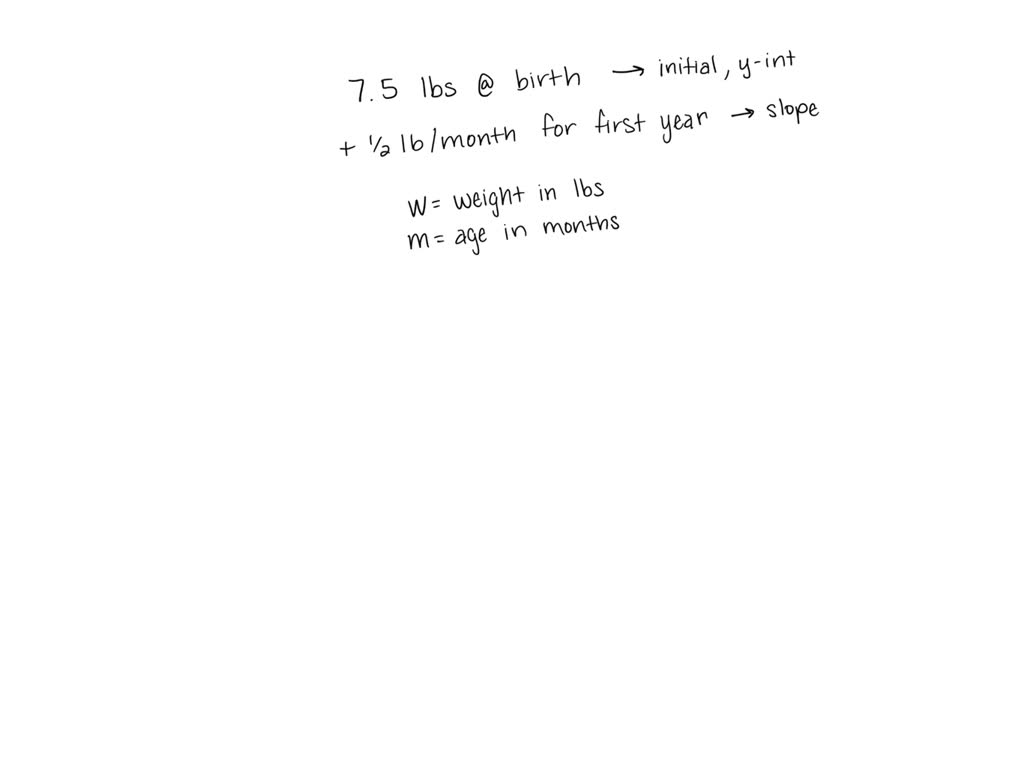 7.5 lbs @ birth → initial, y-int
+ 1/2 lb/month for first year → slope
W = weight in lbs
m = age in months